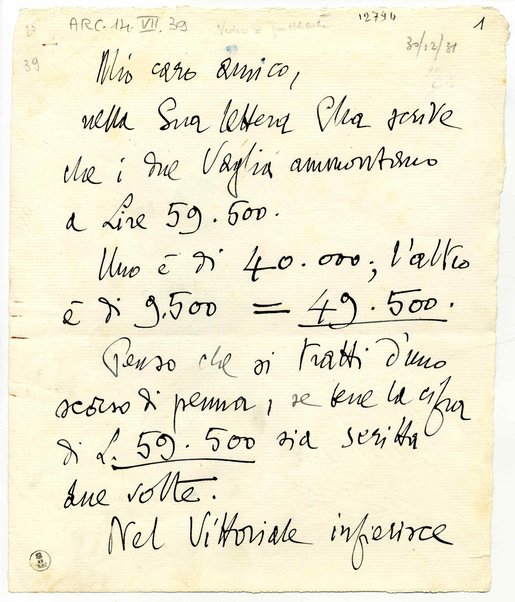 ARC. 14. VII. 39
12794
1
39
30/12/31
Mio caro amico,
nella Sua lettera Ella scrive
che i due Vaglia ammontano
a Lire 59.500.
Uno è di 40.000; l'altro
è di 9.500 = 49.500.
Penso che si tratti d'uno
scorso di penna, se bene la cifra
di L. 59.500 sia scritta
due volte.
Nel Vittoriale inferisce